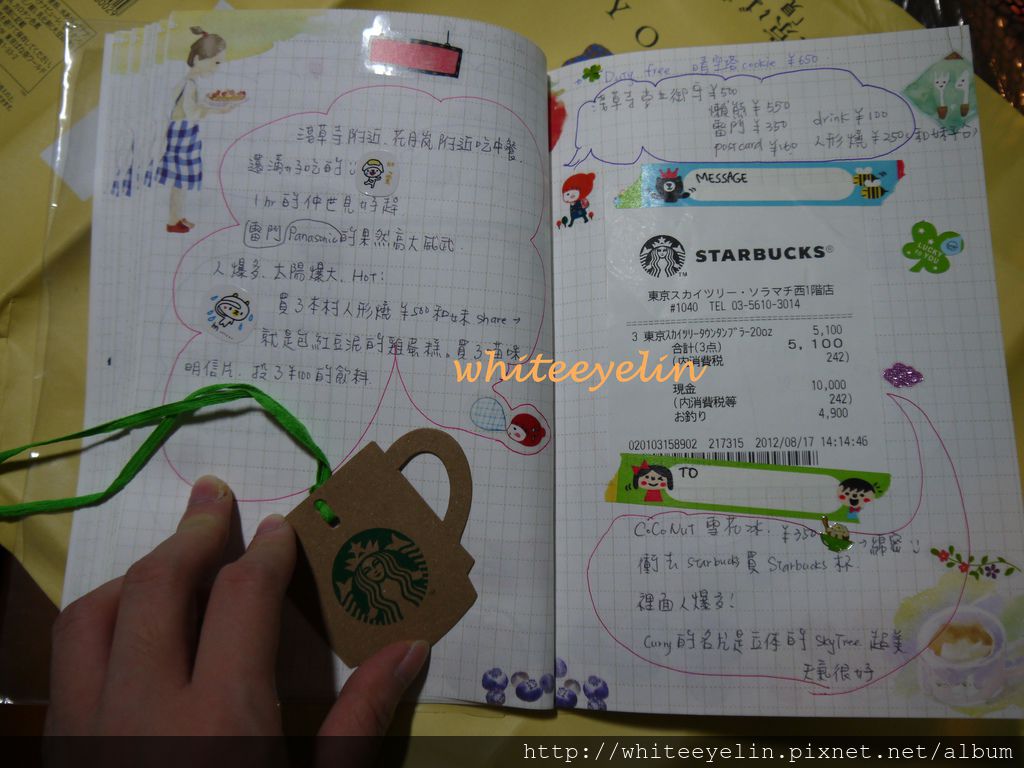 淺草寺附近, 花月嵐附近吃中餐.
還滿好吃的
1 hr 的仲世見好趕
雷門 Panasonic 的果然高大威武.
人爆多. 太陽爆大. HOT:
買了木村人形燒 ¥500 和妹 share →
就是包紅豆泥的雞蛋糕. 買了
明信片. 投了 ¥100 的飲料.
whiteeyelin
Duty free 晴空塔 cookie ¥650
淺草寺 御守 ¥500
懶熊 ¥550
雷門 ¥350
drink ¥100
postcard ¥160
人形燒 ¥250 (和妹平分)
MESSAGE
LUCKY to YOU
STARBUCKS®
東京スカイツリー・ソラマチ西1階店
#1040 TEL 03-5610-3014
3 東京ｽｶｲﾂﾘｰﾀｳﾝﾀﾝﾌﾞﾗｰ20oz 5,100
合計(3点) 5,100
(内消費税 242)
現金 10,000
(内消費税等 242)
お釣り 4,900
020103158902 217315 2012/08/17 14:14:46
TO
CoCoNut 雪花冰. ¥350 → 綿密
衝去 starbucks 買 Starbucks 杯.
裡面人爆多!
Curry 的名片是立体的 SkyTree 超美
天氣很好
http://whiteeyelin.pixnet.net/album